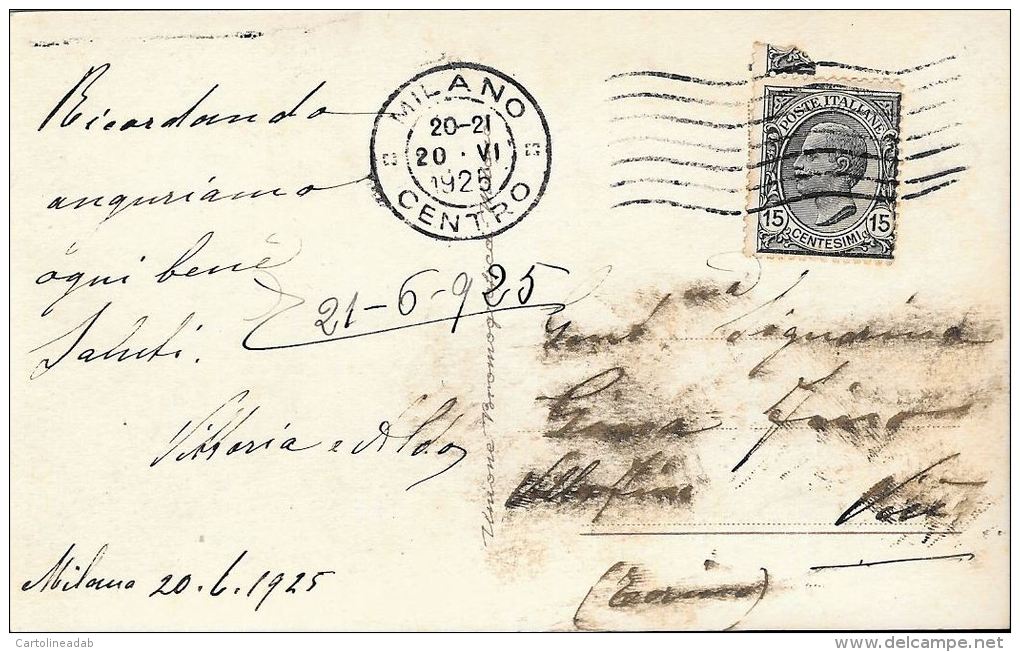 Ricordando
auguriamo
ogni bene
Saluti.
Vittoria e Aldo
Milano 20.6.1925
21-6-925
MILANO
20-21
20 · VI
1925
CENTRO
POSTE ITALIANE
15 15
CENTESIMI
Unione
Gent. ma Signorina
Fino
(Torino)
Cartolineadab
www.delcampe.net